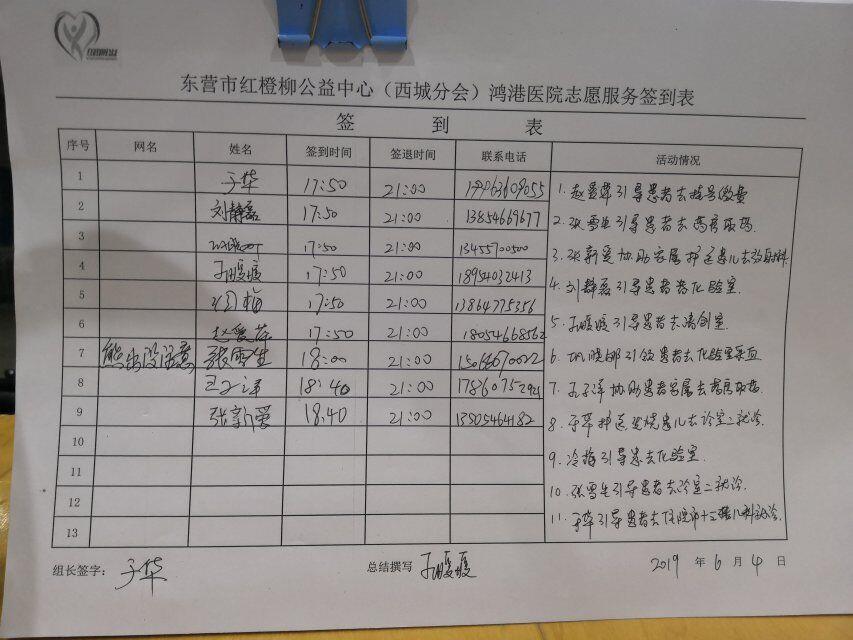 东营市红橙柳公益中心（西城分会）鸿港医院志愿服务签到表
签 到 表
序号 网名 姓名 签到时间 签退时间 联系电话 活动情况
1 于华 17:50 21:00
2 刘静磊 17:50 21:00 13854619677
3 17:50 21:00 13455700500
4 17:50 21:00 18954032413
5 梅 17:50 21:00 13864775356
6 赵爱萍 17:50 21:00 18054668562
7 熊出没注意 张雪生 18:00 21:00
8 18:40 21:00
9 张新爱 18:40 21:00 13505464182
10
11
12
13
1. 赵爱萍引导患者去挂号缴费
2. 张雪生引导患者去药房取药
3. 张新爱协助家属护送患儿去
4. 刘静磊引导患者去化验室.
5. 引导患者去清创室
6. 患者去化验室采血
7. 协助患者家属去药房取药
8. 于华护送发烧患儿去诊室二就诊.
9. 冷梅引导患去化验室.
10. 张雪生引导患者去诊室二就诊.
11. 于华引导患者去住院部十三楼儿科就诊.
组长签字： 于华 总结撰写 2019 年 6 月 4 日